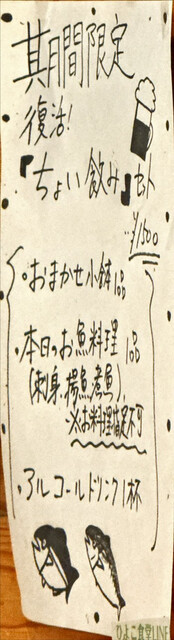 其月間限定
復活!
『ちょい飲み』セット
¥1500
・おまかせ小鉢1品
・本日のお魚料理1品
(刺身、揚魚、煮魚)
※お料理指定不可
・アルコールドリンク1杯
ひよこ食堂LINE